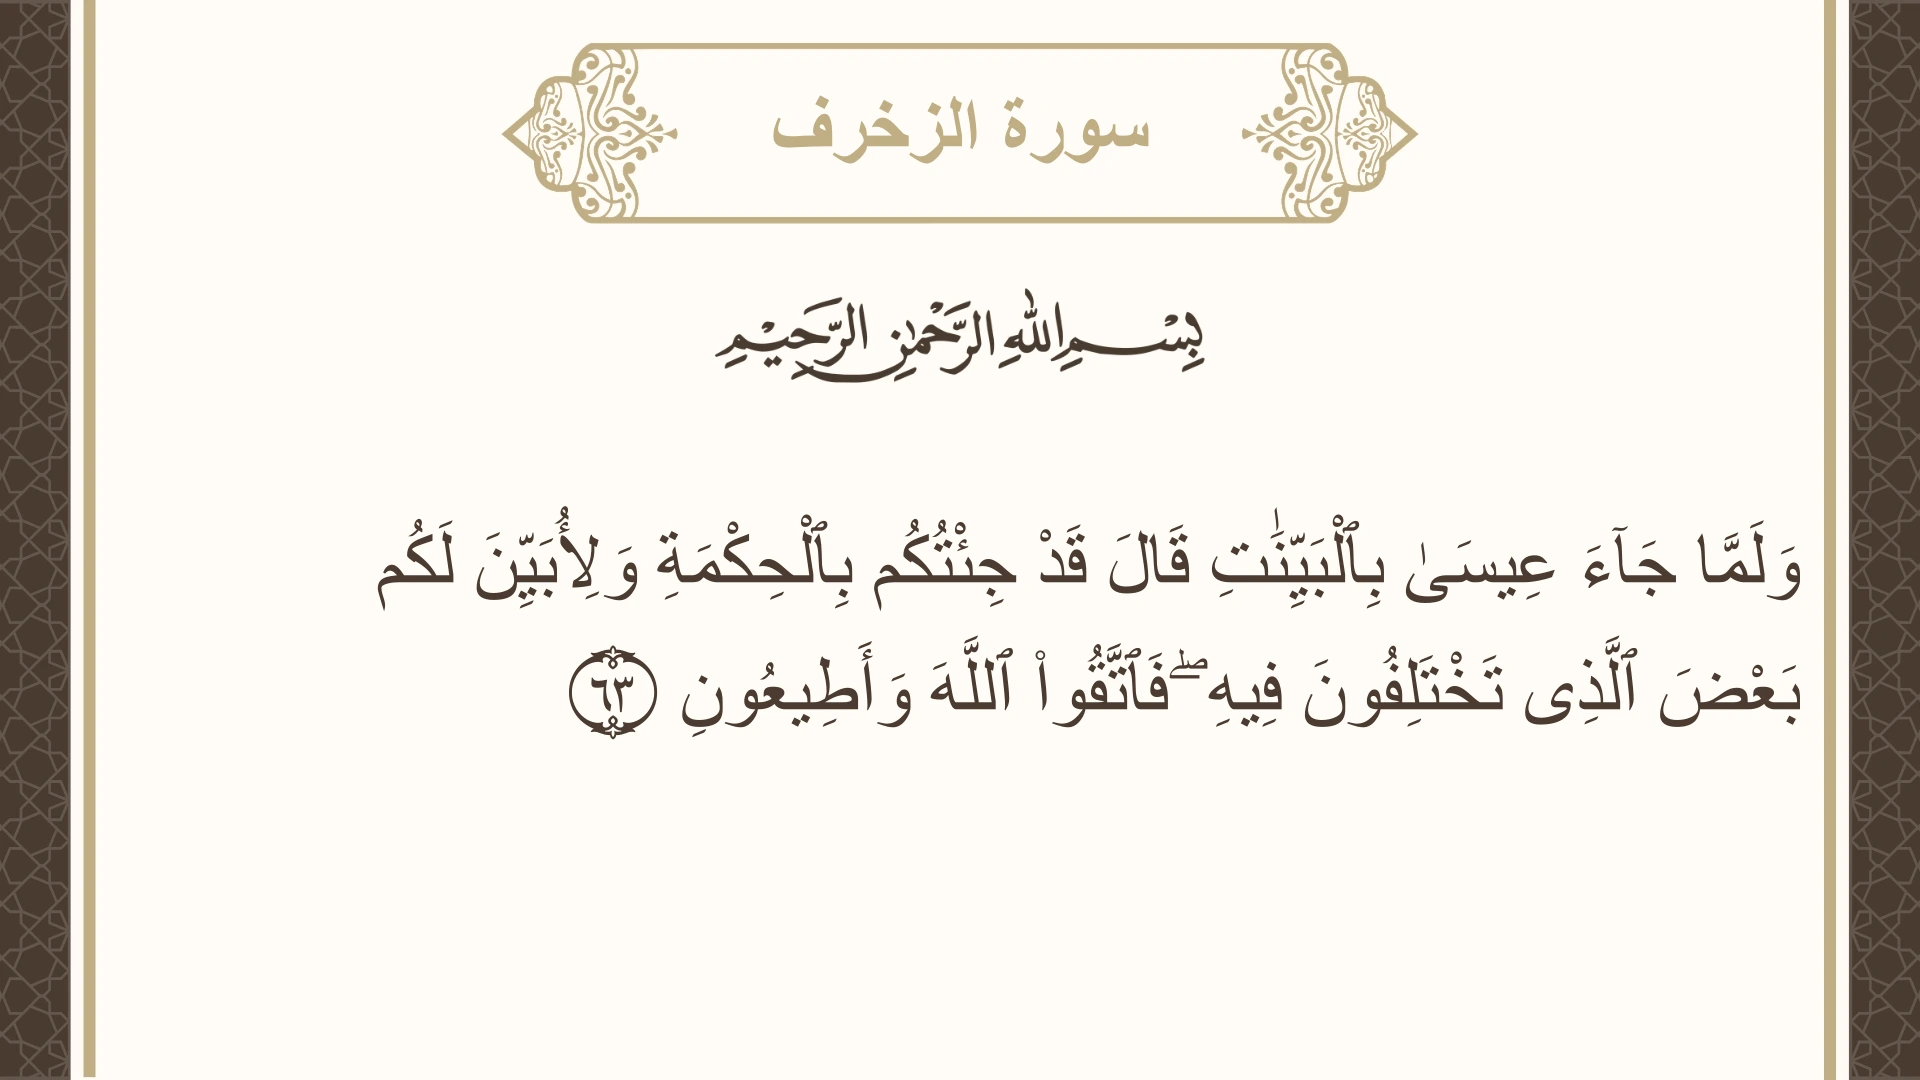 سورة الزخرف
بِسْمِ اللهِ الرَّحْمٰنِ الرَّحِيْمِ
وَلَمَّا جَآءَ عِيسَىٰ بِٱلْبَيِّنَٰتِ قَالَ قَدْ جِئْتُكُم بِٱلْحِكْمَةِ وَلِأُبَيِّنَ لَكُم
بَعْضَ ٱلَّذِى تَخْتَلِفُونَ فِيهِ ۖ فَٱتَّقُوا۟ ٱللَّهَ وَأَطِيعُونِ ٦٣